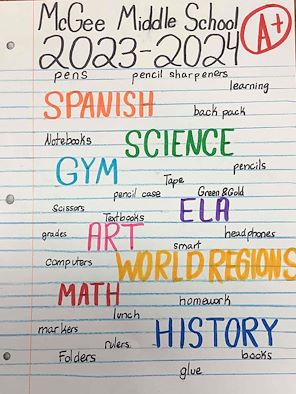 McGee Middle School
A+
2023-2024
pens pencil sharpeners
learning
SPANISH back pack
Notebooks SCIENCE
GYM Tape pencils
pencil case Green & Gold
Scissors Textbooks ELA
grades ART smart headphones
Computers WORLD REGIONS
MATH homework
lunch
markers HISTORY
rulers
Folders books
glue